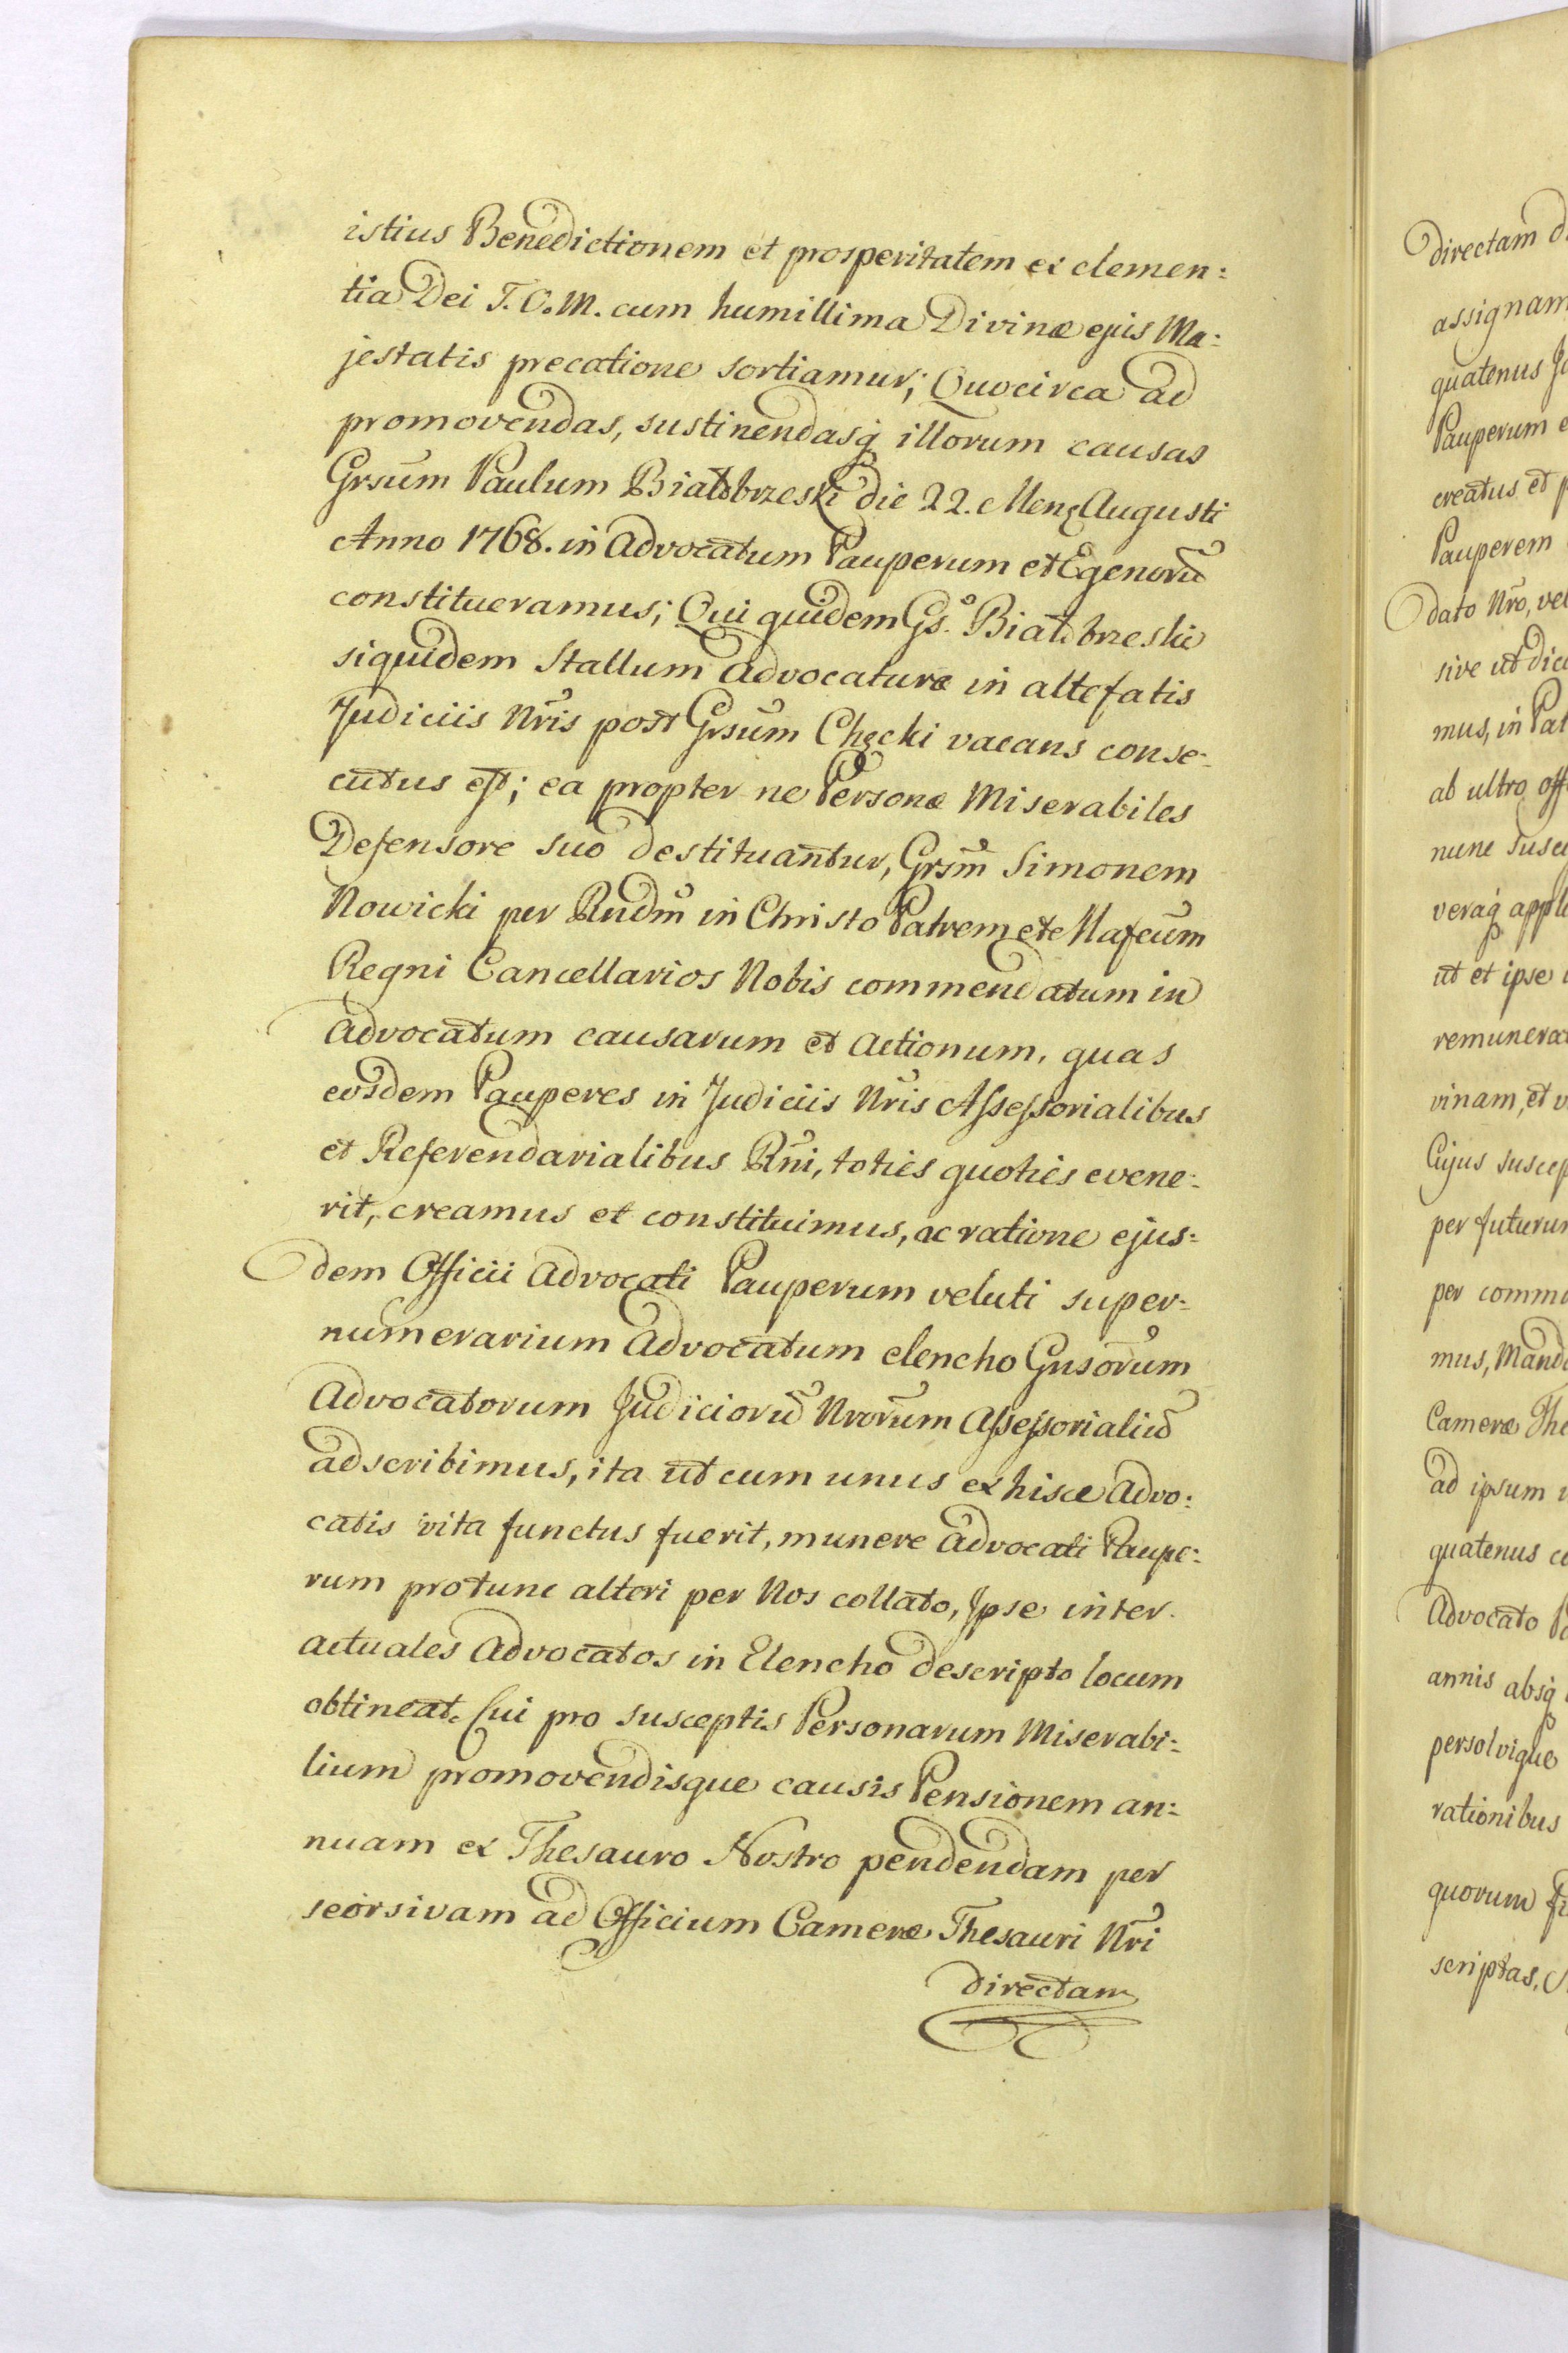 istius Benedictionem et prosperitatem ex clemen:
tia Dei T.O.M. cum humillima Divinæ ejus Ma:
jestatis precatione sortiamur; Quocirca ad
promovendas, sustinendasq́ illorum causas
Grsum Paulum Białobrzeski die 22. Mens Augusti
Anno 1768. in Advocatum Pauperum et Egenorũ
constitueramus; Qui quidem Gs. Białobrzeski
siquidem Stallum Advocaturæ in altefatis
Judiciis Nris post Grsum Chęcki vacans conse:
cutus est; ea propter ne Personæ Miserabiles
Defensore suo destituantur, Grsm Simonem
Nowicki per Rndm in Christo Patrem et Magcum
Regni Cancellarios Nobis commendatum in
Advocatum causarum et Actionum, quas
eosdem Pauperes in Judiciis Nris Assessorialibus
et Referendarialibus Rni, toties quoties evene:
rit, creamus et constituimus, ac ratione ejus:
dem Officii Advocati Pauperum veluti super:
numerarium Advocatum elencho Gnsorum
Advocatorum Judiciorũ Nrorum Assessorialiũ
adscribimus, ita ut cum unus ex hisce Advo:
catis vita functus fuerit, munere Advocati Paupe:
rum protunc alteri per Nos collato, Ipse inter
actuales Advocatos in Elencho descripto locum
obtineat. Cui pro susceptis Personarum Miserabi:
lium promovendisque causis Pensionem an:
nuam ex Thesauro Nostro pendendam per
seorsivam ad Officium Cameræ Thesauri Nri
directam
directam
assignam
quatenus
Pauperum
creatus et
Pauperem
dato Nro, vel
sive ut
mus, in
ab ultro
nunc
veraq́
ut et ipse
vinam, et
Cujus
per
per
mus,
Cameræ
ad ipsum
quatenus
Advocato
annis absq́
persolvique
rationibus
quorum
scriptas.